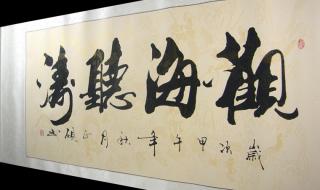 觀海聽濤
歲次甲午年秋月